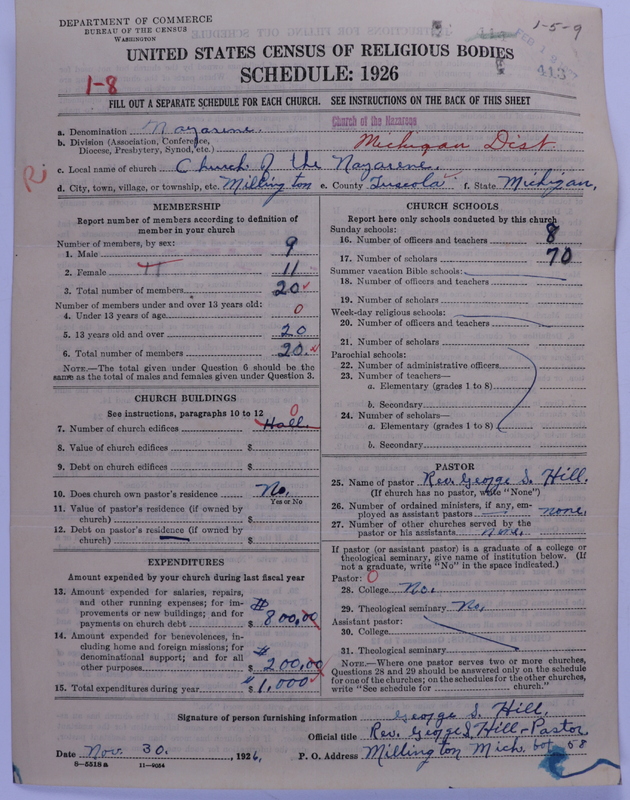 DEPARTMENT OF COMMERCE
BUREAU OF THE CENSUS
WASHINGTON
1-5-9
413
UNITED STATES CENSUS OF RELIGIOUS BODIES
SCHEDULE: 1926
1-8
FILL OUT A SEPARATE SCHEDULE FOR EACH CHURCH. SEE INSTRUCTIONS ON THE BACK OF THIS SHEET
Church of the Nazarene
a. Denomination Nazarene.
b. Division (Association, Conference, Diocese, Presbytery, Synod, etc.) Michigan Dist
c. Local name of church Church of the Nazarene.
d. City, town, village, or township, etc. Millington e. County Tuscola f. State Michigan.
MEMBERSHIP
Report number of members according to definition of
member in your church
Number of members, by sex:
1. Male 9
2. Female 11
3. Total number of members 20
Number of members under and over 13 years old:
4. Under 13 years of age 0
5. 13 years old and over 20
6. Total number of members 20.
NOTE.—The total given under Question 6 should be the
same as the total of males and females given under Question 3.
CHURCH BUILDINGS
See instructions, paragraphs 10 to 12
0
7. Number of church edifices Hall
8. Value of church edifices $
9. Debt on church edifices $
10. Does church own pastor's residence No.
Yes or No
11. Value of pastor's residence (if owned by
church) $
12. Debt on pastor's residence (if owned by
church) $
EXPENDITURES
Amount expended by your church during last fiscal year
13. Amount expended for salaries, repairs,
and other running expenses; for im-
provements or new buildings; and for
payments on church debt $ 800.00
14. Amount expended for benevolences, in-
cluding home and foreign missions; for
denominational support; and for all
other purposes $ 200.00
15. Total expenditures during year $ 1,000
CHURCH SCHOOLS
Report here only schools conducted by this church
Sunday schools:
16. Number of officers and teachers 8
17. Number of scholars 70
Summer vacation Bible schools:
18. Number of officers and teachers
19. Number of scholars
Week-day religious schools:
20. Number of officers and teachers
21. Number of scholars
Parochial schools:
22. Number of administrative officers
23. Number of teachers—
a. Elementary (grades 1 to 8)
b. Secondary
24. Number of scholars—
a. Elementary (grades 1 to 8)
b. Secondary
PASTOR
25. Name of pastor Rev. George S. Hill.
(If church has no pastor, write "None")
26. Number of ordained ministers, if any, em-
ployed as assistant pastors none.
27. Number of other churches served by the
pastor or his assistants none.
If pastor (or assistant pastor) is a graduate of a college or
theological seminary, give name of institution below. (If
not a graduate, write "No" in the space indicated.)
Pastor: 0
28. College No.
29. Theological seminary No.
Assistant pastor:
30. College
31. Theological seminary
NOTE.—Where one pastor serves two or more churches,
Questions 28 and 29 should be answered only on the schedule
for one of the churches; on the schedules for the other churches,
write "See schedule for church."
Signature of person furnishing information George S. Hill.
Official title Rev. George S. Hill-Pastor.
Date Nov. 30. , 1926, P. O. Address Millington Mich. box 58
8—5518 a 11—9054